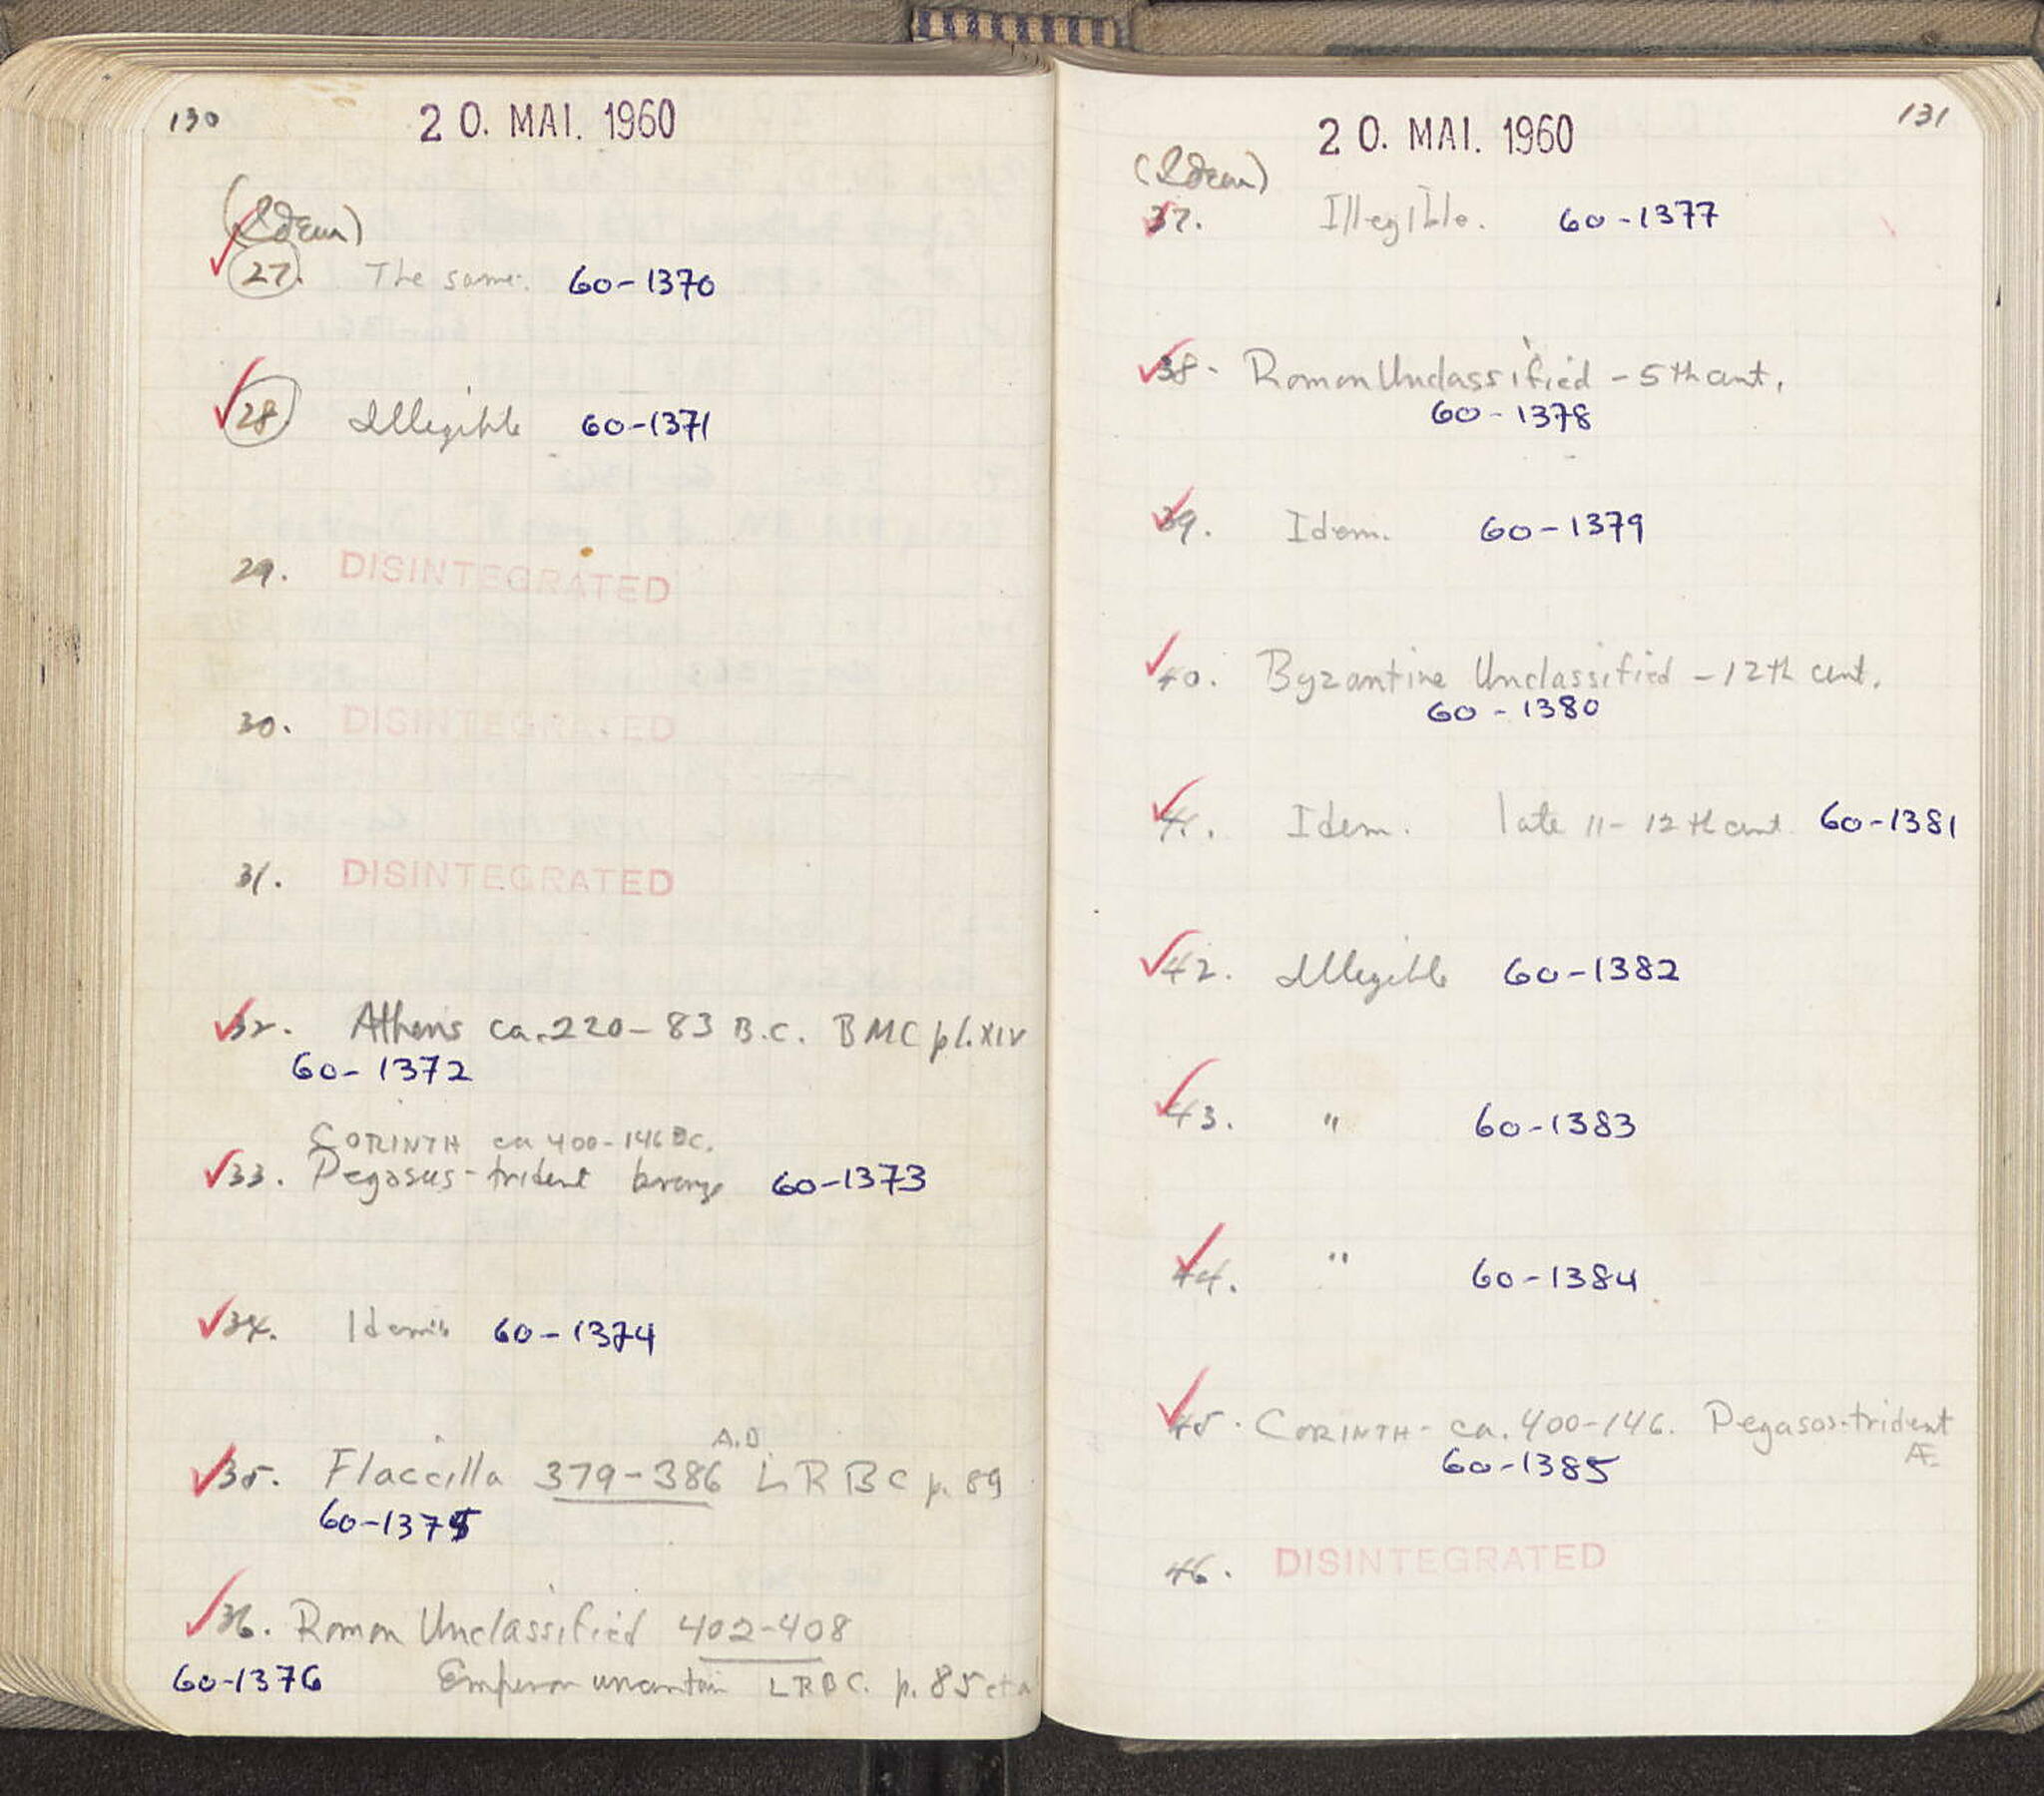 130
20. MAI. 1960
(Idem)
27. The same. 60-1370
28. Illegible 60-1371
29. DISINTEGRATED
30. DISINTEGRATED
31. DISINTEGRATED
32. Athens ca. 220-83 B.C. BMC pl. XIV
60-1372
CORINTH ca 400-146 BC.
33. Pegasus-trident bronze 60-1373
34. Idem 60-1374
A.D.
35. Flaccilla 379-386 LRBC p. 89
60-1375
36. Roman Unclassified 402-408
60-1376 Emperor uncertain LRBC. p. 85 et al
131
20. MAI. 1960
(Idem)
37. Illegible. 60-1377
38. Roman Unclassified - 5th cent.
60-1378
39. Idem. 60-1379
40. Byzantine Unclassified - 12th cent.
60-1380
41. Idem. late 11-12th cent. 60-1381
42. Illegible 60-1382
43. " 60-1383
44. " 60-1384
45. CORINTH - ca. 400-146. Pegasos-trident
Æ
60-1385
46. DISINTEGRATED